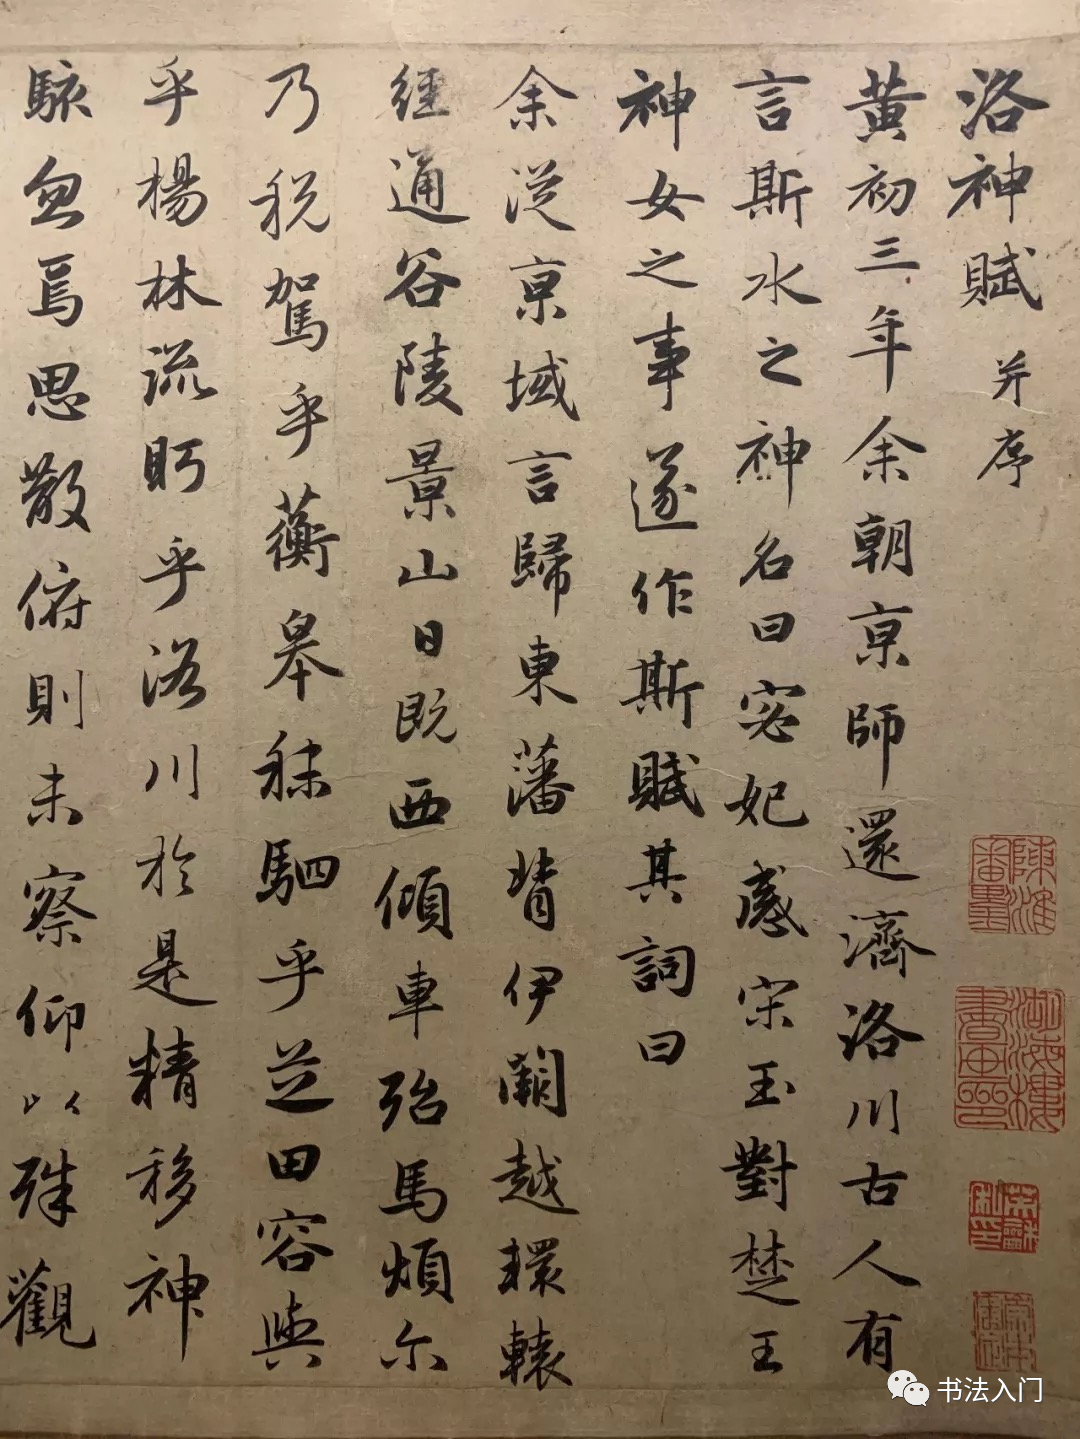 洛神賦并序
黄初三年余朝京師還濟洛川古人有
言斯水之神名曰宓妃感宋玉對楚王
神女之事遂作斯賦其詞曰
余從京域言歸東藩背伊闕越轘轅
經通谷陵景山日既西傾車殆馬煩尓
乃税駕乎蘅皋秣駟乎芝田容與
乎楊林流眄乎洛川於是精移神
駭忽焉思散俯則未察仰以殊觀
书法入门